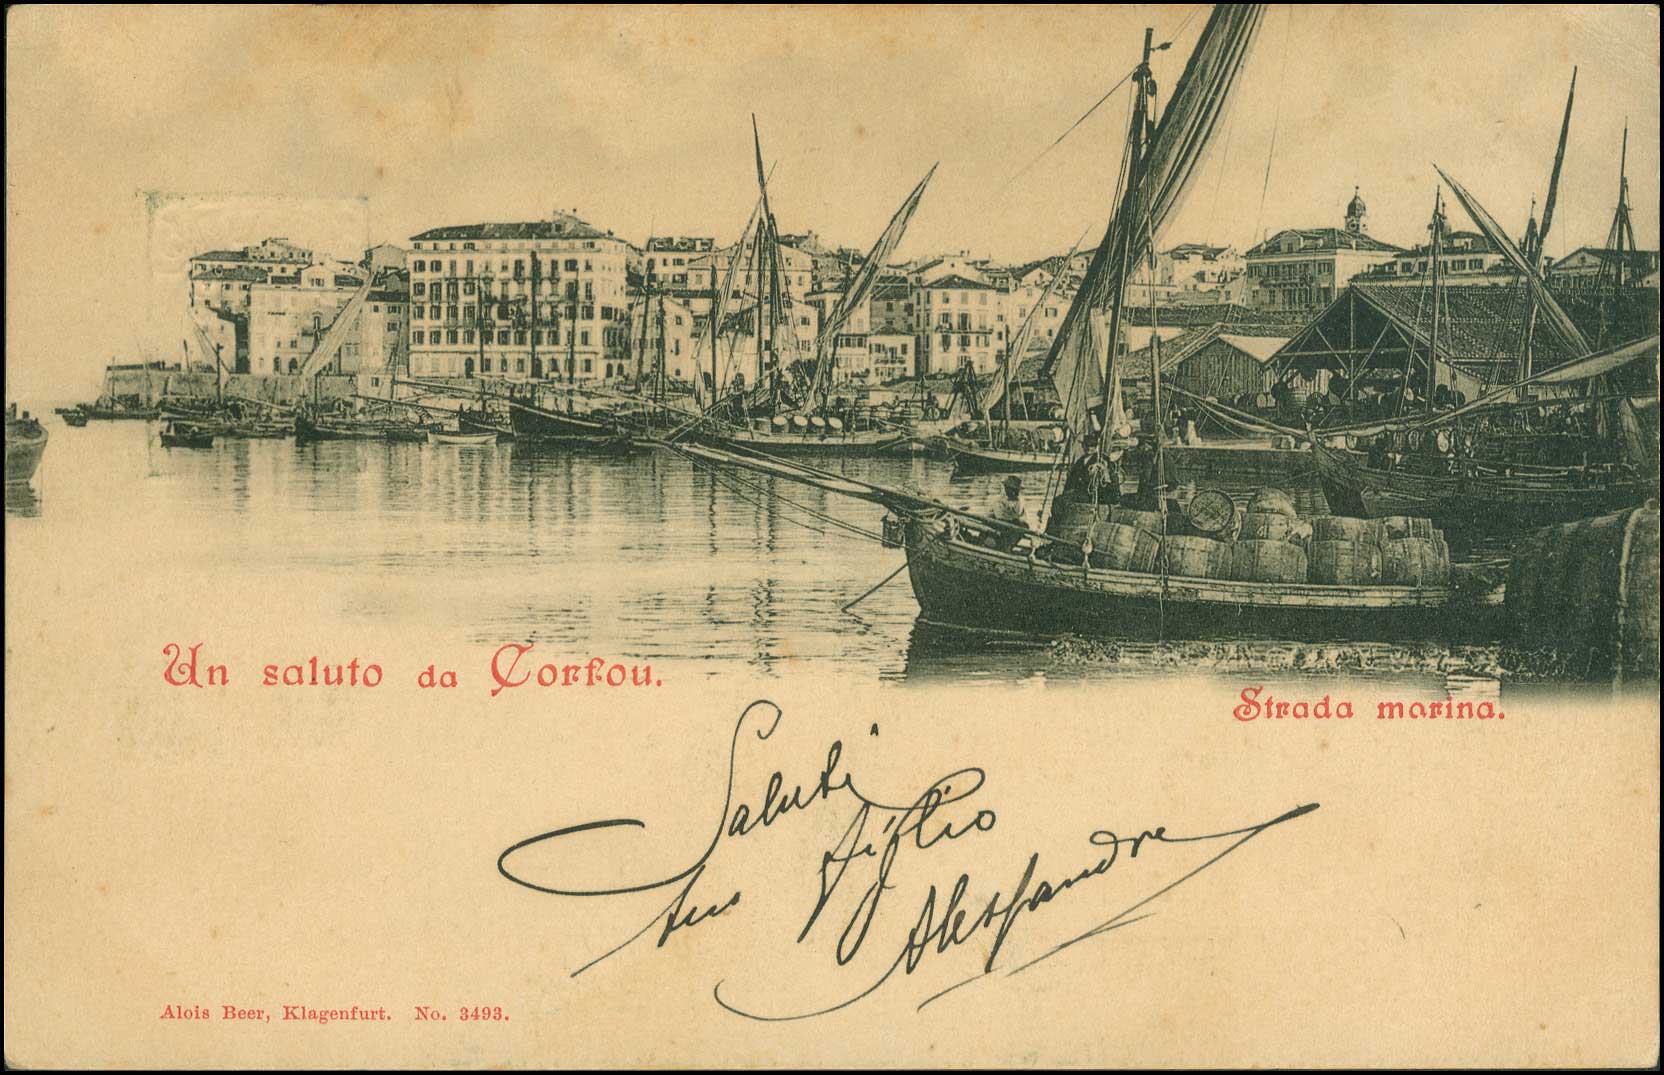 Un saluto da Corfou.
Strada marina.
Saluti
tuo figlio
Alessandro
Alois Beer, Klagenfurt. No. 3493.